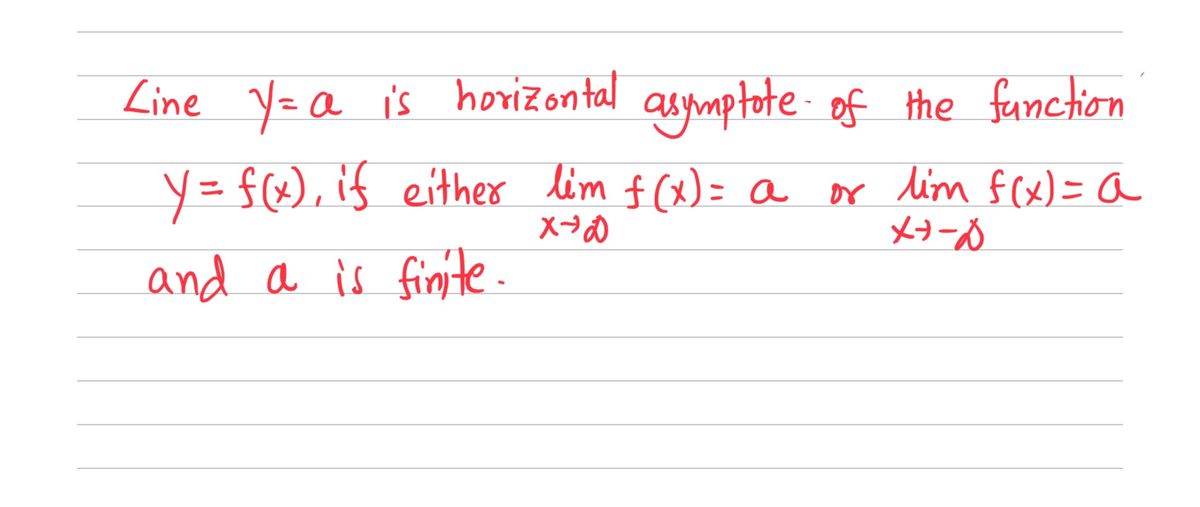 Line y=a is horizontal asymptote of the function
y = f(x), if either lim f(x) = a or lim f(x) = a
x→∞ x→-∞
and a is finite.